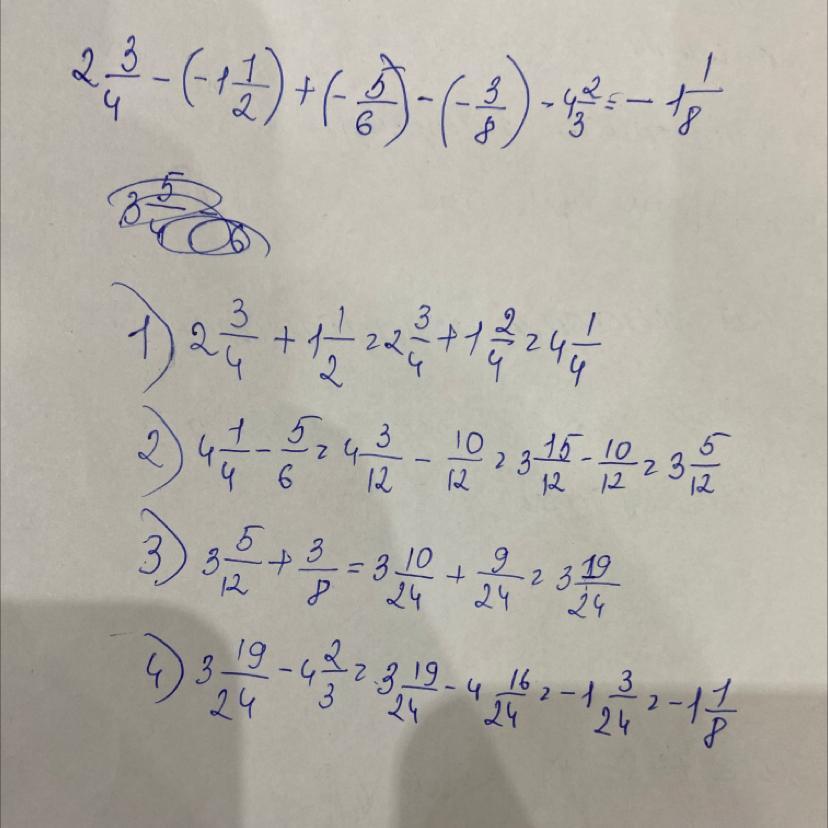 2 3/4 - (-1 1/2) + (-5/6) - (-3/8) - 4 2/3 = -1 1/8
1) 2 3/4 + 1 1/2 = 2 3/4 + 1 2/4 = 4 1/4
2) 4 1/4 - 5/6 = 4 3/12 - 10/12 = 3 15/12 - 10/12 = 3 5/12
3) 3 5/12 + 3/8 = 3 10/24 + 9/24 = 3 19/24
4) 3 19/24 - 4 2/3 = 3 19/24 - 4 16/24 = -1 3/24 = -1 1/8